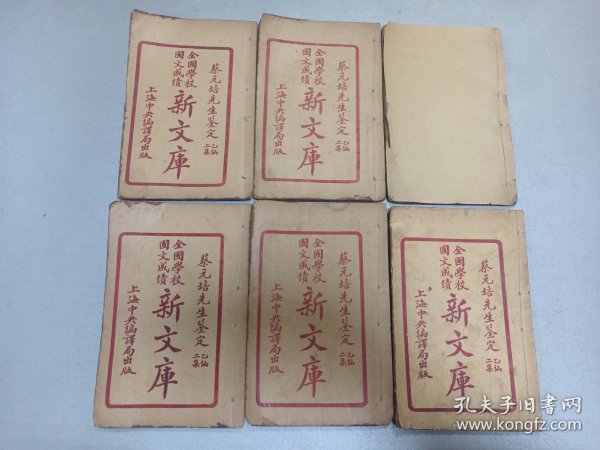 蔡元培先生鉴定
乙编
二集
全國學校
國文成绩
新文庫
上海中央編譯局出版
蔡元培先生鉴定
乙编
二集
全國學校
國文成绩
新文庫
上海中央編譯局出版
蔡元培先生鉴定
乙编
二集
全國學校
國文成绩
新文庫
上海中央編譯局出版
蔡元培先生鉴定
乙编
二集
全國學校
國文成绩
新文庫
上海中央編譯局出版
蔡元培先生鉴定
乙编
二集
全國學校
國文成绩
新文庫
上海中央編譯局出版
孔夫子旧书网
www.kongfz.com